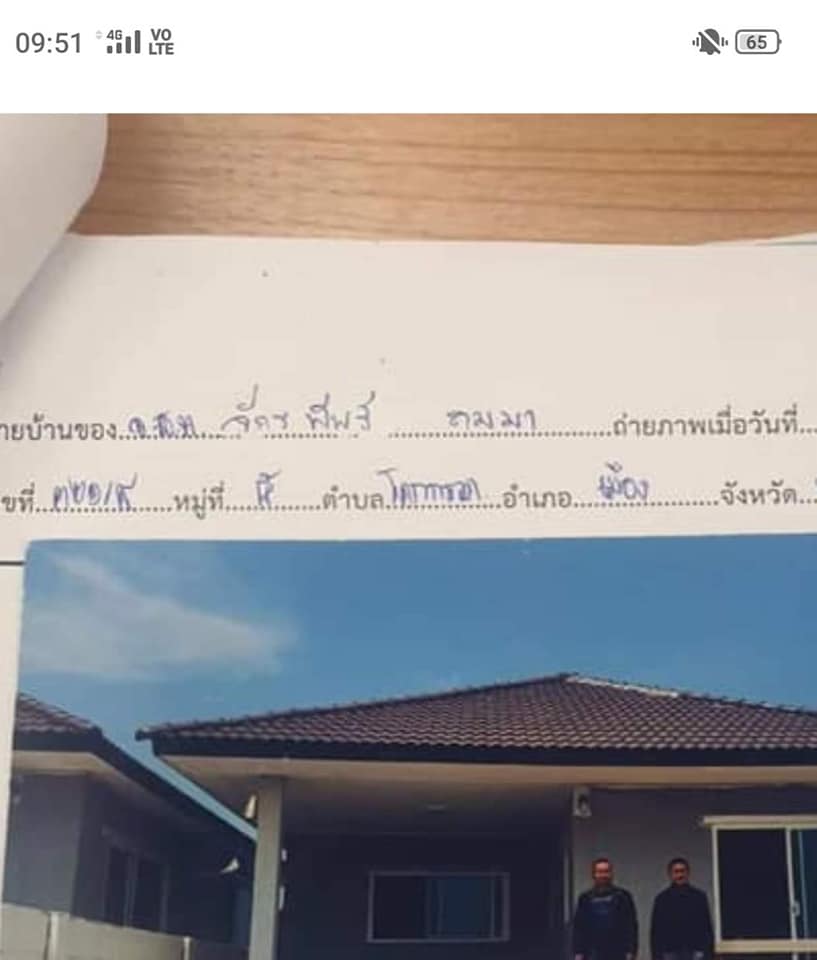 09:51 4G VO LTE 65
ายบ้านของ จ.ส.อ. จักรพันธ์ ถมมา ถ่ายภาพเมื่อวันที่
ขที่ หมู่ที่ ๕ ตำบล โคกกรวด อำเภอ เมือง จังหวัด